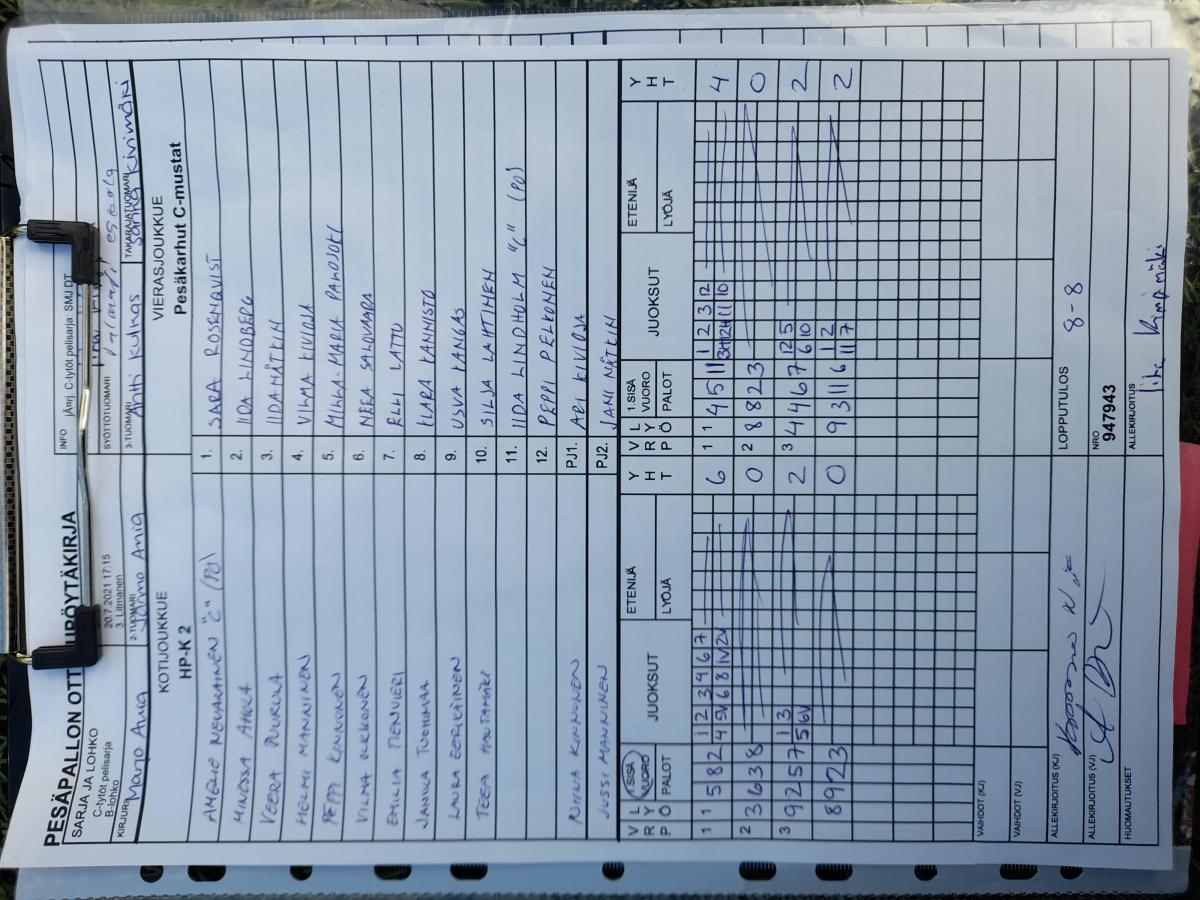 PESÄPALLON OTT PÖYTÄKIRJA
SARJA JA LOHKO
C-tytöt pelisarja
B-lohko
20.7.2021 17:15
3. Litmanen
INFO
jÄnrj. C-tytöt pelisarja: SMJ DT
KIRJURI
Marjo Ania
2-TUOMARI
Jarmo Ania
SYÖTTÖTUOMARI
3-TUOMARI
Antti Kulhas
TAKARAJATUOMARI
Kivimäki
KOTIJOUKKUE
HP-K 2
VIERASJOUKKUE
Pesäkarhut C-mustat
AMELIE NEUVAINEN "C" (PO) 1. SARA ROSENQVIST
MINESSA AHOLA 2. IIDA LINDBERG
VEERA PUURULA 3. IIDA MÄTKIN
HELMI MANNINEN 4. VILMA KIVIOJA
PEPPI KINNUNEN 5. MILKA-MARIA PAHOJOKI
VILMA 6. NEEA SALOVAARA
EMILIA 7. ELLI LATTU
JANIKA TUOMMAA 8. KIARA KANNISTO
LAURA EERIKÄINEN 9. USVA KANGAS
TEEA HAUTAMÄKI 10. SILJA LAHTINEN
11. IIDA LINDHOLM "C" (PO)
12. PEPPI PELKONEN
KINNUNEN PJ1. ARI KIVIOJA
JUSSI MANNINEN PJ2. JANI MÄTKIN
V R P L Y Ö 1.SISÄ VUORO PALOT JUOKSUT ETENIJÄ LYÖJÄ Y H T V R P L Y Ö 1.SISÄ VUORO PALOT JUOKSUT ETENIJÄ LYÖJÄ Y H T
1 1 5 8 2 1 2 3 4 6 7 6 1 1 4 5 11 1 2 3 12 4
4 5V 6 8 1V 2V 11 10
2 3 6 3 8 0 2 8 8 2 3 0
3 9 2 5 7 1 3 2 3 4 4 6 7 12 5 2
5 6V 6 10
8 9 2 3 0 9 3 11 6 1 2 2
11 7
VAIHDOT (KJ)
VAIHDOT (VJ)
ALLEKIRJOITUS (KJ)
LOPPUTULOS 8-8
ALLEKIRJOITUS (VJ)
NRO
947943
HUOMAUTUKSET
ALLEKIRJOITUS